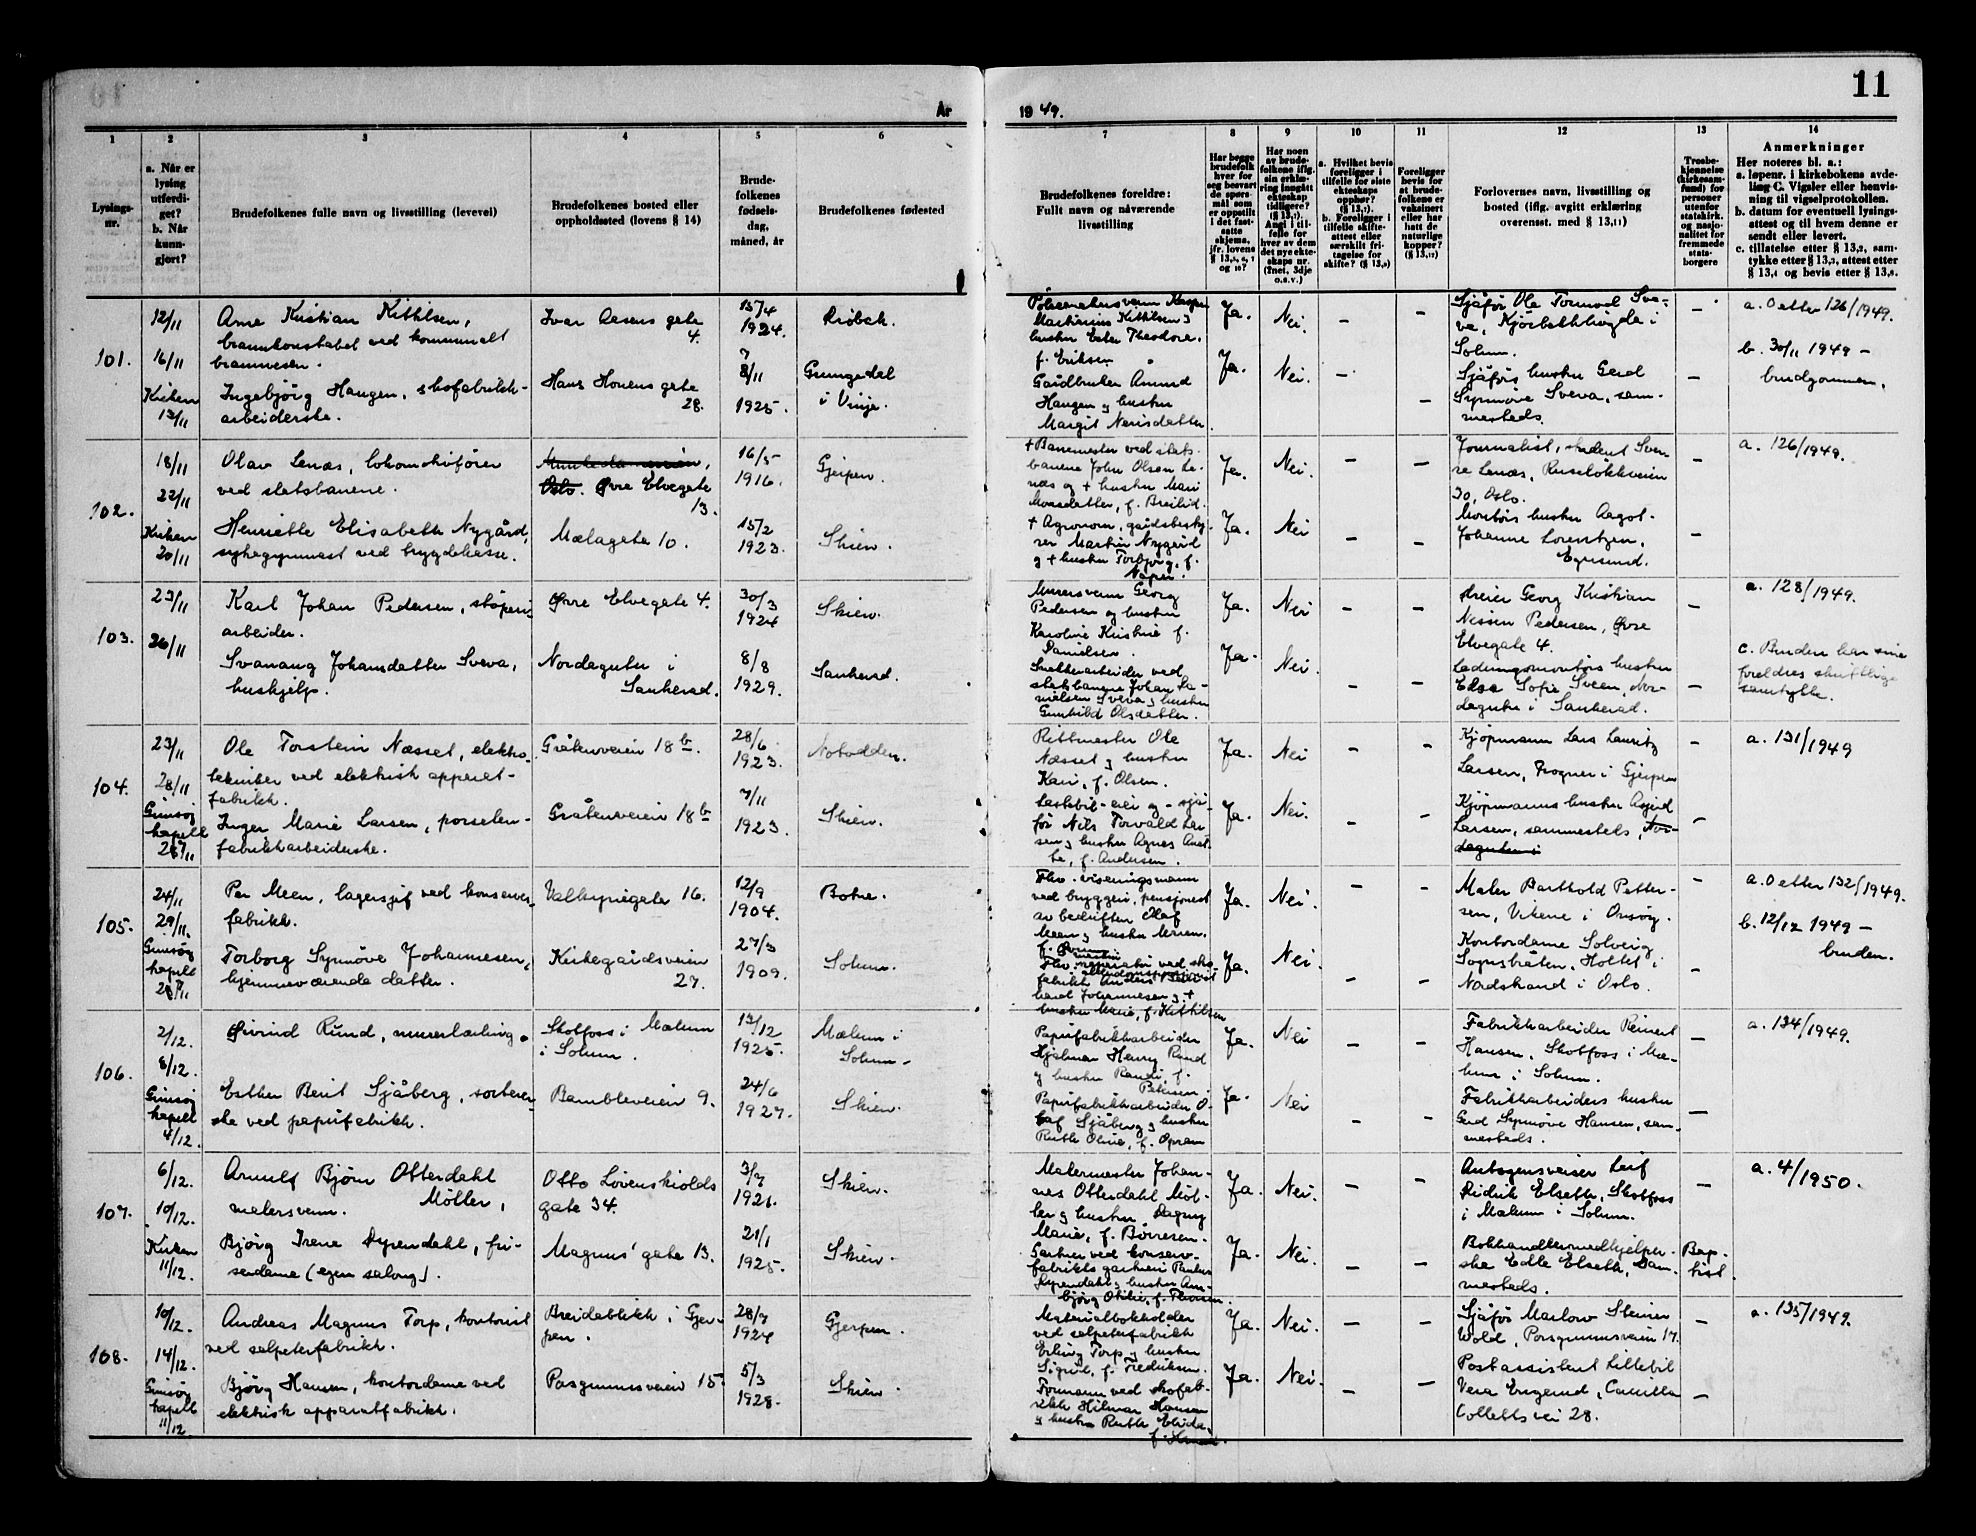 11
År
19 49.
1
2
3
4
5
6
7
8
9
10
11
12
13
14
Lysings-
nr.
a. Når er
lysing
utferdi-
get?
b. Når
kunn-
gjort?
Brudefolkenes fulle navn og livsstilling (levevei)
Brudefolkenes bosted eller
oppholdssted (lovens § 14)
Brude-
folkenes
fødsels-
dag,
måned, år
Brudefolkenes fødested
Brudefolkenes foreldre:
Fullt navn og nåværende
livsstilling
Har begge
brudefolk
hver for
seg besvart
de spørs-
mål som
er oppstilt
i det fast-
satte
skjema,
jfr. lovens
Har noen
av brude-
folkene iflg.
sin erklæ-
ring inngått
ekteskap
tidligere?
Angi i til-
felle for
hver av dem
det nye ekte-
skaps nr.
(2net, 3dje
o.s.v.)
a. Hvilket bevis
foreligger i
tilfelle for siste
ekteskaps
opphør?
b. Foreligger i
tilfelle skifte-
attest eller
særskilt fri-
tagelse for
skifte?
Foreligger
bevis for
at brude-
folkene er
vaksinert
eller har
hatt de
naturlige
kopper?
Forlovernes navn, livsstilling og
bosted (iflg. avgitt erklæring
overensst. med § 13,11)
Trosbe-
kjennelse
(kirkesam-
fund) for
personer
utenfor
statskirk.
og nasjo-
nalitet for
fremmede
stats-
borgere
Anmerkninger
Her noteres bl. a.:
a. løpenr. i kirkebokens avde-
ling C. Vigsler eller henvis-
ning til vigselprotokollen.
b. datum for eventuell lysings-
attest og til hvem denne er
sendt eller levert.
c. tillatelse etter § 13,2, sam-
tykke etter § 13,3, attest etter
§ 13,4 og bevis etter § 13,8.
101.
12/11
16/11
Kirken
13/11
Arne Kristian Kittilsen,
brannkonstabel ved kommunalt
brannvesen.
Ingebjørg Haugen, skofabrikk-
arbeiderske.
Ivar Aasens gate
4.
Hans Houens gate
28.
15/4
1924.
8/11
1925.
Grungedal
i Vinje.
Martinius Kittilsen og
f. Eriksen
Gårdbruker Amund
Haugen og hustru
Margit Nerisdatter.
Ja.
Nei.
Ja.
Nei.
Sjåfør Ole Tormod Sve-
Solum.
Sjåførs hustru Gerd
Synnøve Sveva, sam-
mesteds.
a. 0 etter 126/1949.
b. 30/11 1949 -
brudgommen.
102.
18/11
22/11
Kirken
20/11
Olav Lenæs, lokomotivfører
ved statsbanene.
Henriette Elisabeth Nygård,
sykegymnast ved trygdekasse.
Oslo. Øvre Elvegate
13.
Mælagate 10.
16/5
1916.
15/2
1923.
Gjerpen.
Skien.
+ Banemester ved stats-
banene John Olsen Le-
næs og + hustru Mari
+ Agronom, gårdsbesty-
rer Martin Nygård
og + hustru Torbjørg, f.
Ja.
Nei.
Ja.
Nei
Journalist, student Sver-
re Lenæs, Ruseløkkveien
30, Oslo.
Montørs hustru Aagot
Johanne Lorentzen,
Egersund.
a. 126/1949.
103.
23/11
26/11
Karl Johan Pedersen, støperi-
arbeider.
Svanaug Johansdatter Sveva,
hushjelp.
Øvre Elvegate 4.
Nordagutu i
Sauherad.
30/3
1924
8/8
1929.
Skien.
Sauherad.
Murersvenn Georg
Pedersen og hustru
Karoline Kristine f.
Danielsen.
Snekkerarbeider ved
statsbanene Johan Da-
nielsen Sveva og hustru
Gunhild Olsdatter.
Ja.
Nei
Ja.
Nei.
Dreier Georg Kristian
Nissen Pedersen, Øvre
Elvegate 4.
Ledningsmontørs hustru
Elsa Sofie Sveen, Nor-
dagutu i Sauherad.
a. 128/1949.
c. Bruden har sine
foreldres skriftlige
samtykke.
104.
23/11
28/11
Gimsøy
kapell
27/11
Ole Torstein Næsset, elektro-
tekniker ved elektrisk apparat-
fabrikk.
Inger Marie Larsen, porselen-
fabrikkarbeiderske.
Gråtenveien 18 b.
Gråtenveien 18 b
28/6
1923.
7/11
1923.
Notodden.
Skien.
Rittmester Ole
Næsset og hustru
Kari, f. Olsen.
Lastebil-eier og -sjå-
før Nils Torvald Lar-
sen og hustru Agnes Anet-
te, f. Andersen.
Ja.
Nei
Ja.
Nei.
Kjøpmann Lars Lauritz
Larsen, Frogner i Gjerpen
Kjøpmanns hustru Asfrid
Larsen, sammesteds, Nor-
dagutu i
a. 131/1949
105.
24/11
29/11.
Gimsøy
kapell
27/11
Per Meen, lagersjef ved konserves-
fabrikk.
Torborg Synnøve Johannesen,
hjemmeværende datter.
Valkyriegate 16.
Kirkegårdsveien
27.
12/9
1904.
27/3
1909.
Botne.
Solum.
Fhv. viseringsmann
ved bryggeri, pensjonist
av bedriften Olaf
Meen og hustru Maren,
hard Johannesen og +
hustru Marie, f. Kittilsen
Ja.
Nei.
Ja.
Nei.
Maler Barthold Petter-
sen, Vikene i Onsøy.
Kontordame Solveig
Sognsbråten, Holtet i
Nordstrand i Oslo.
a. 0 etter 132/1949.
b. 12/12 1949 -
bruden.
106.
2/12.
8/12.
Gimsøy
kapell
4/12.
Øivind Rund, murerlærling.
Esther Berit Sjåberg, sorterer-
ske ved papirfabrikk.
Skotfoss i Mælum
i Solum.
Bambleveien 9.
13/12
1925.
24/6
1927.
Mælum i
Solum.
Skien.
Papirfabrikkarbeider
Hjalmar Henry Rund
og hustru Randi, f.
Petersen.
Papirfabrikkarbeider O-
laf Sjåberg og hustru
Ruth Oline, f. Opran
Ja.
Nei
Ja.
Nei
Fabrikkarbeider Reinert
Hansen, Skotfoss i Mæ-
lum i Solum.
Fabrikkarbeiders hustru
Gerd Synnøve Hansen, sam-
mesteds.
a. 134/1949.
107.
6/12.
10/12.
Kirken
11/12.
Arnulf Bjørn Otterdahl
Möller,
malersvenn.
Bjørg Irene Dyrendahl, fri-
serdame (egen salong).
Otto Løvenskiolds
gate 34.
Magnus' gate 13.
3/7
1926.
21/1
1925.
Skien.
Skien.
Malermester Johan-
nes Otterdahl Möl-
ler og hustru Dagny
Marie, f. Børresen.
Gartner ved konserv-
fabrikks gartneri Paulus
Dyrendahl og hustru Am-
bjørg Otilie, f. Thorsen.
Ja.
Nei.
Ja.
Nei.
Didrik Elseth, Skotfoss
i Mælum i Solum.
Bokhandlermedhjelper-
ske Edle Elseth, sam-
mesteds.
Bap-
tist.
a. 4/1950.
108.
10/12.
14/12.
Gimsøy
kapell
11/12
Andreas Magnus Torp, kontorist
ved salpeterfabrikk.
Bjørg Hansen, kontordame ved
elektrisk apparatfabrikk.
Breidablikk i Gjer-
pen.
Porsgrunnsveien 15.
28/7
1924
5/3
1928.
Gjerpen.
Skien.
Materialbokholder
ved salpeterfabrikk
Erling Torp og hustru
Sigrid, f. Fredriksen.
Formann ved skofab-
rikk Hilmar Hansen
og hustru Ruth Elida,
Ja.
Nei.
Ja.
Nei.
Sjåfør Marlow Steiner
Wold, Porsgrunnsveien 17.
Postassistent Lillebil
Vera Engerud, Camilla
Colletts vei 28.
a. 135/1949.